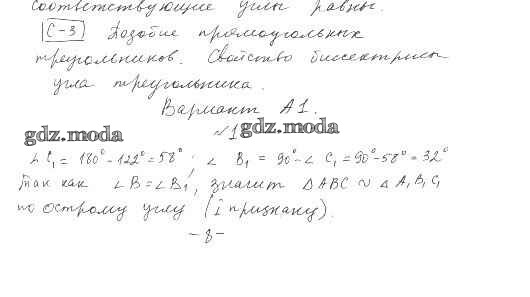 соответствующие углы равны.
С-3 Подобие прямоугольных
треугольников. Свойство биссектрисы
угла треугольника.
Вариант А1.
gdz.moda №1 gdz.moda
∠ C₁ = 180° - 122° = 58°; ∠ B₁ = 90° - ∠ C₁ = 90° - 58° = 32°
Так как ∠B = ∠B₁, значит △ABC ~ △A₁B₁C₁
по острому углу (I признаку).
- 8 -